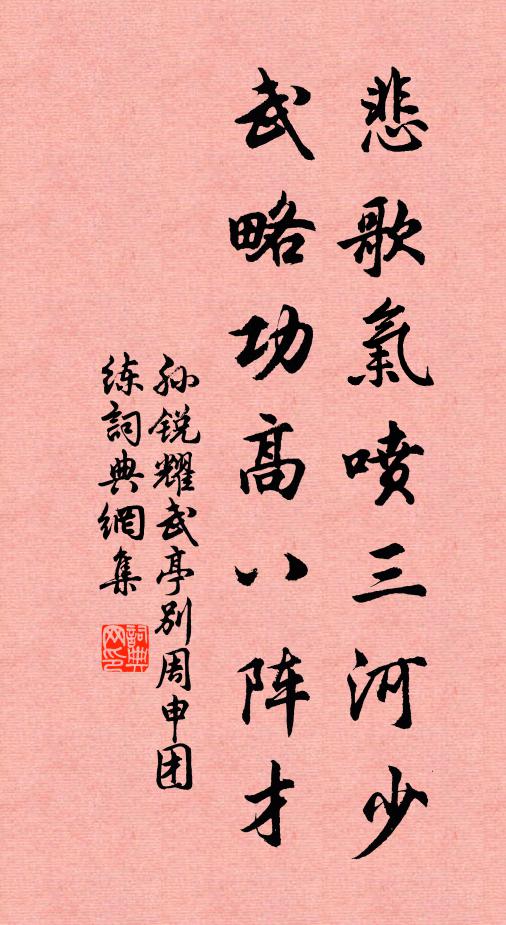 悲歌氣噴三河少
武略功高八阵才
孙锐耀武亭别周申团
练詞典網集
詞典
网印